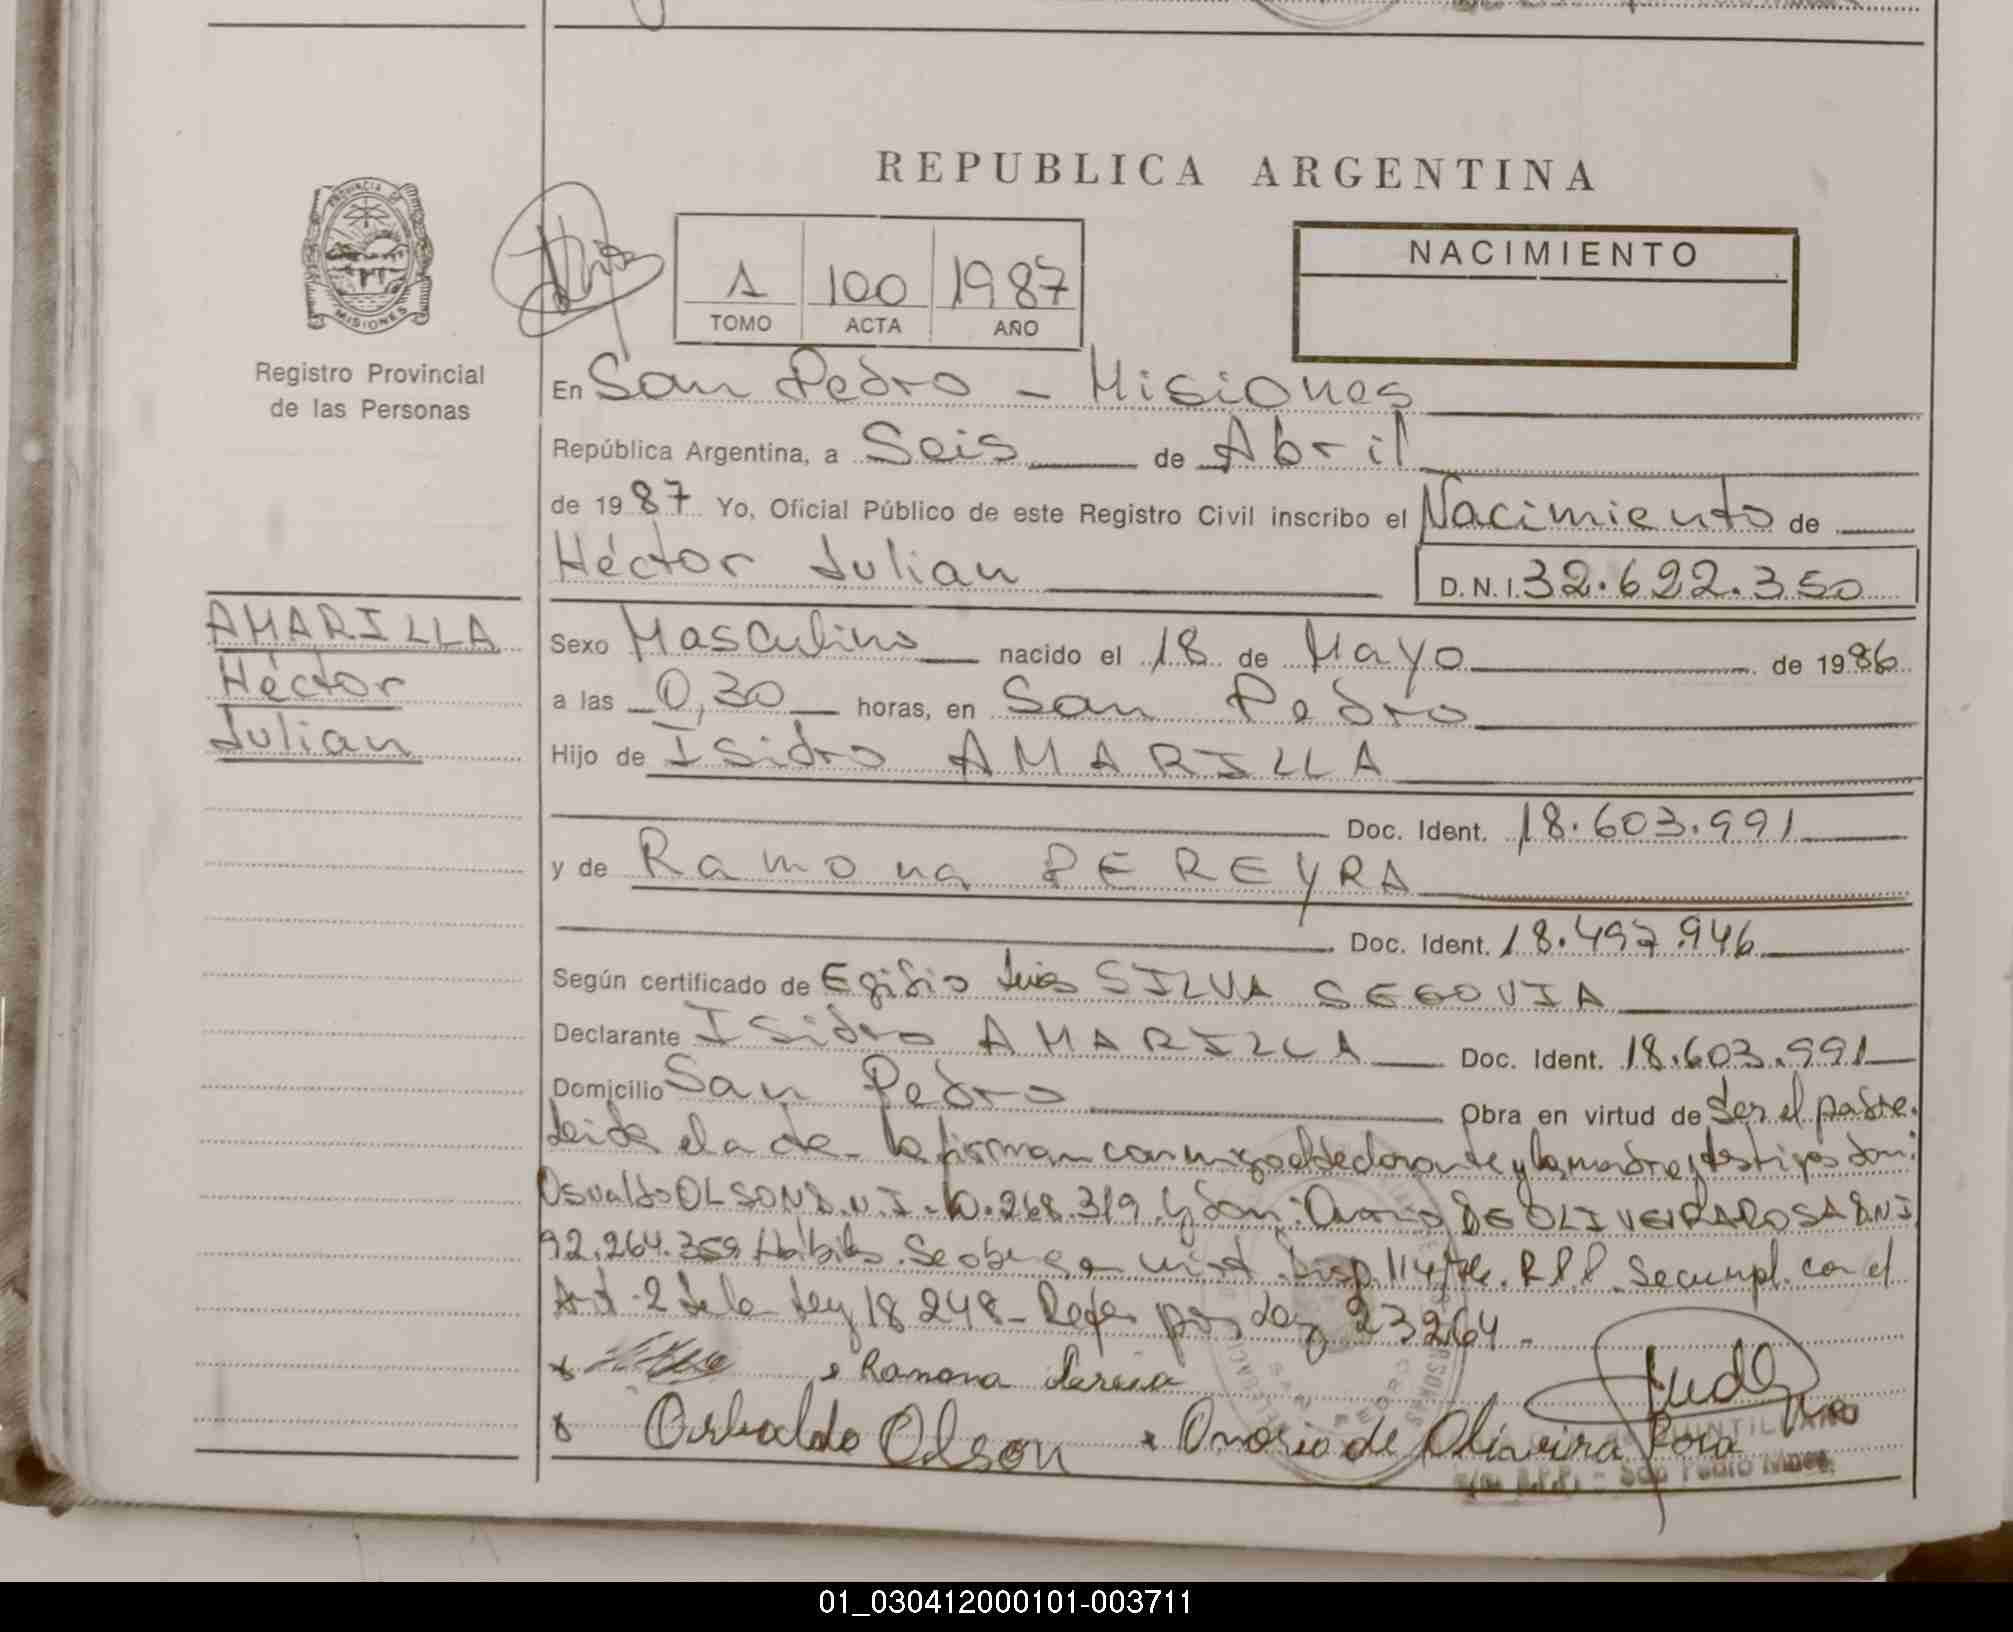 REPUBLICA ARGENTINA
PROVINCIA DE
MISIONES
Registro Provincial
de las Personas
1 100 1987
TOMO ACTA AÑO
NACIMIENTO
En San Pedro - Misiones
República Argentina, a Seis de Abril
de 1987 Yo, Oficial Público de este Registro Civil inscribo el Nacimiento de
Héctor Julian
D.N.I. 32.622.350
AMARILLA
Héctor
Julian
Sexo Masculino nacido el 18 de Mayo de 1986
a las 0,30 horas, en San Pedro
Hijo de Isidro AMARILLA
Doc. Ident. 18.603.991
y de Ramona PEREYRA
Doc. Ident. 18.497.946
Según certificado de Egidio Luis SILVA SEGOVIA
Declarante Isidro AMARILLA Doc. Ident. 18.603.991
Domicilio San Pedro Obra en virtud de ser el padre.
Leida el acta la firman conmigo el declarante y la madre, testigos don:
Osvaldo OLSON D.N.I. 10.268.319 y don: Onorio DE OLIVEIRA ROSA D.N.I
92.264.359 Hábiles. Se obra en virt. Disp. 114/76. R.P.P. Se cumpl. con el
Art. 2 de la Ley 18248 - por Ley 23264 -
x Ramona
x Osbaldo Olson x Onorio de Oliveira Rosa
San Pedro Mnes.
01_030412000101-003711